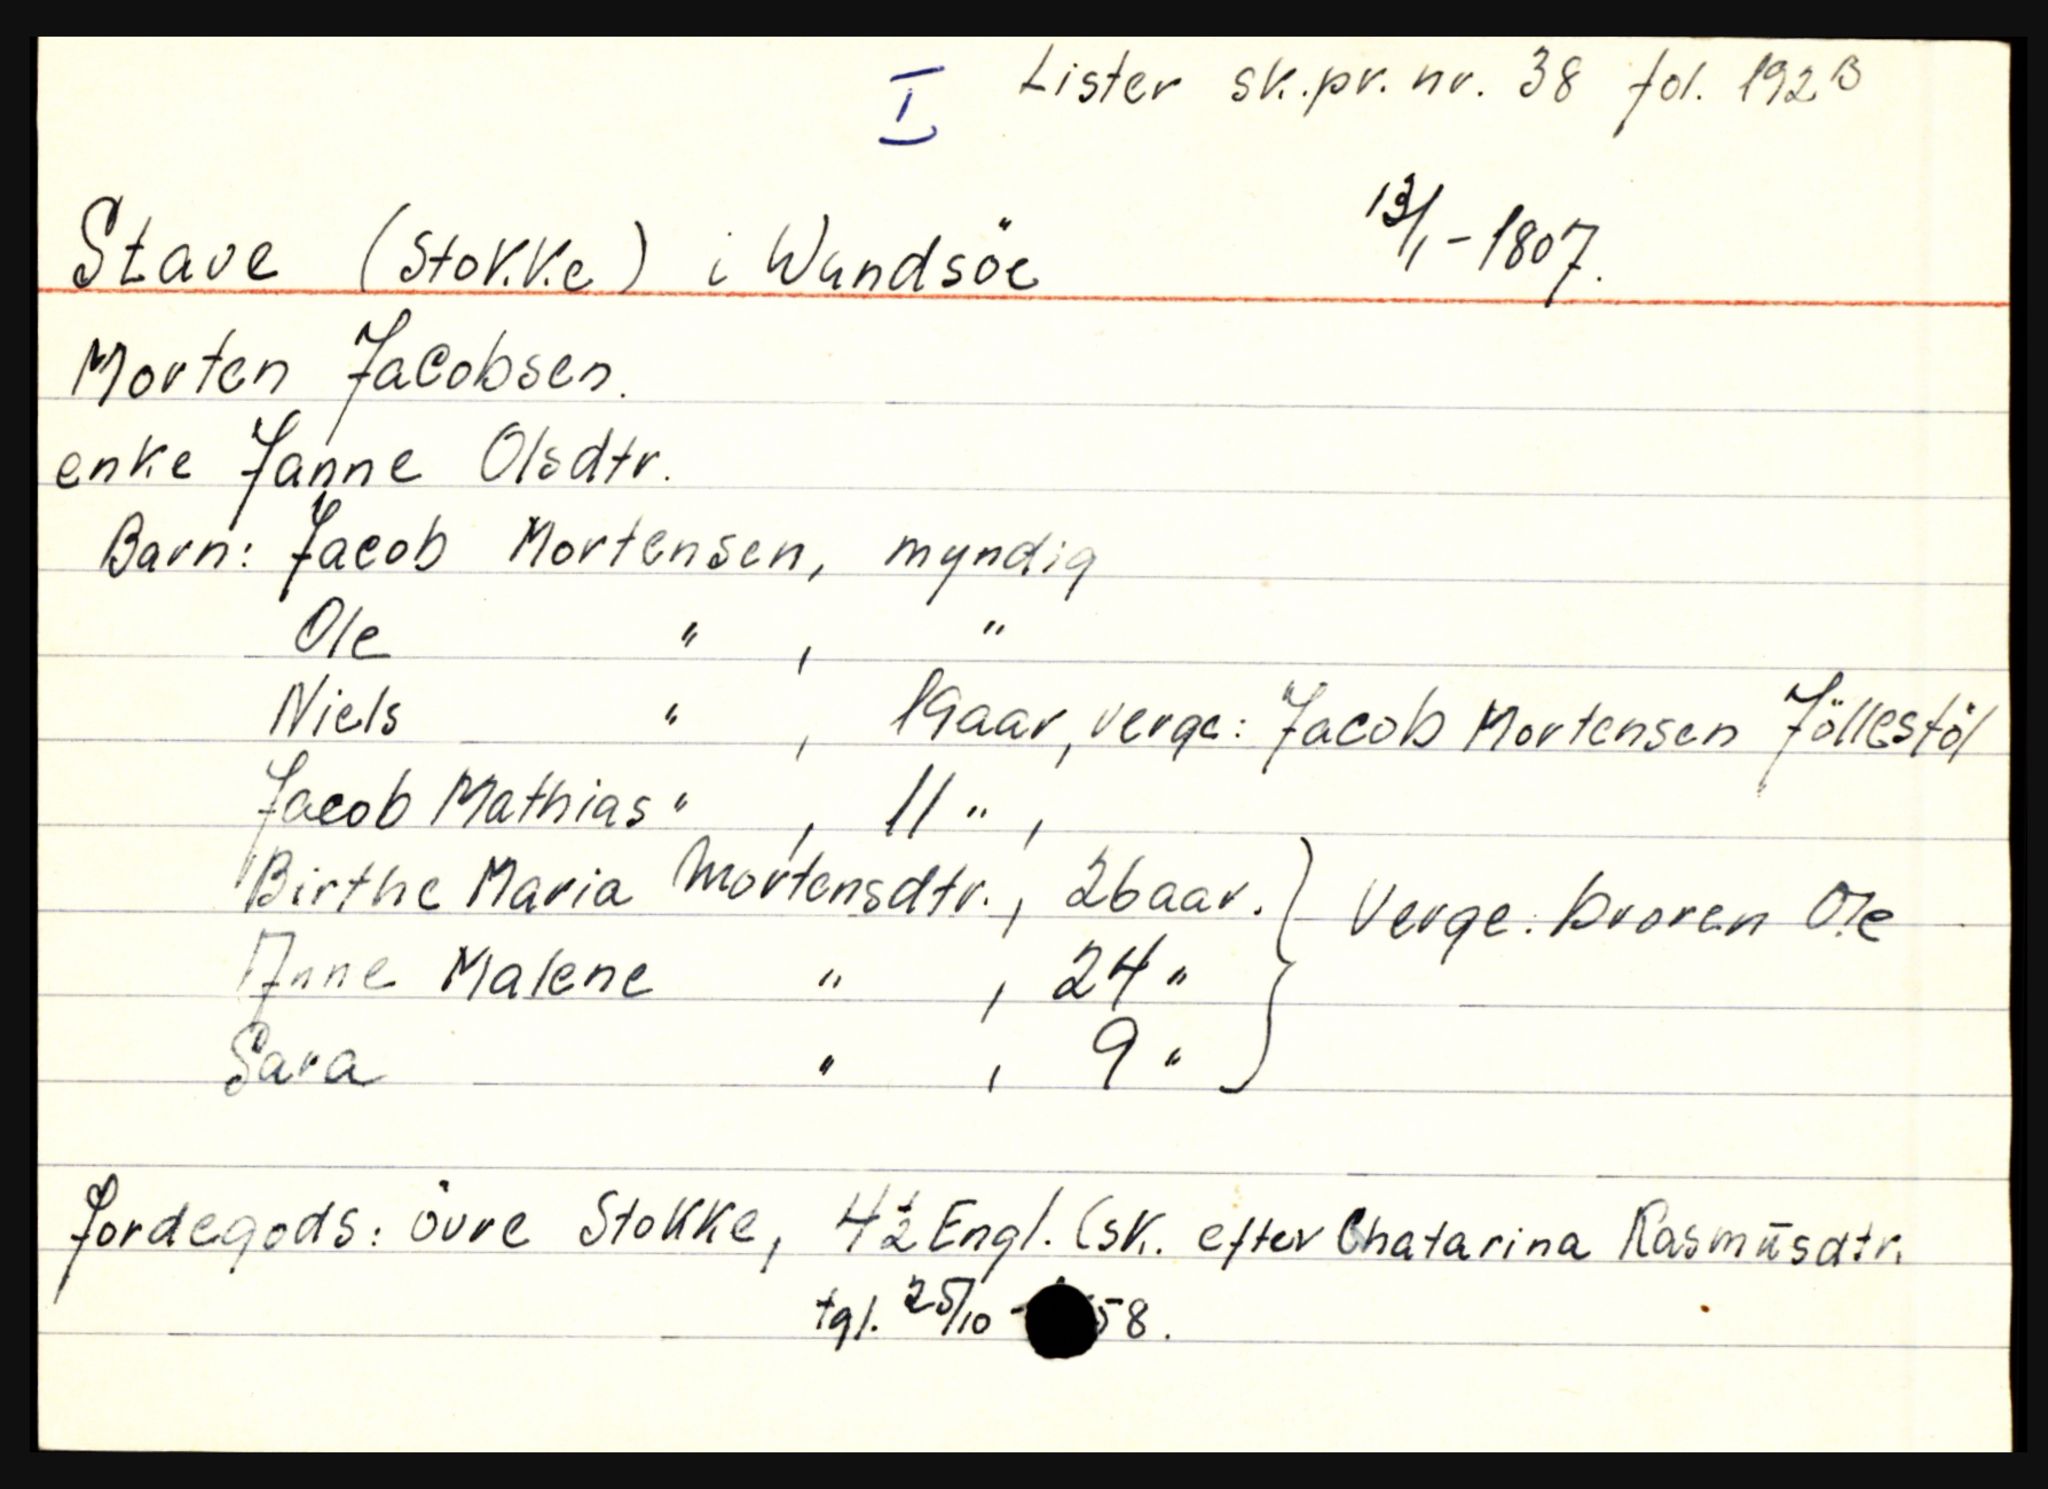 I Lister sk.pr. nr. 38 fol. 192B
Stave (Stokke) i Wundsöe 13/1-1807.
Morten Jacobsen.
enke Janne Olsdtr.
Barn: Jacob Mortensen, myndig
Ole " , "
Niels " , 19aar, verge: Jacob Mortensen Jöllestöl
Jacob Mathias " , 11 " ,
Birthe Maria Mortensdtr., 26aar. } Verge: broren Ole
Anne Malene " , 24 "
Sara " , 9 "
Jordegods: övre Stokke, 4½ Engl. (sk. efter Chatarina Rasmusdtr.
tgl. 25/10 - 58.